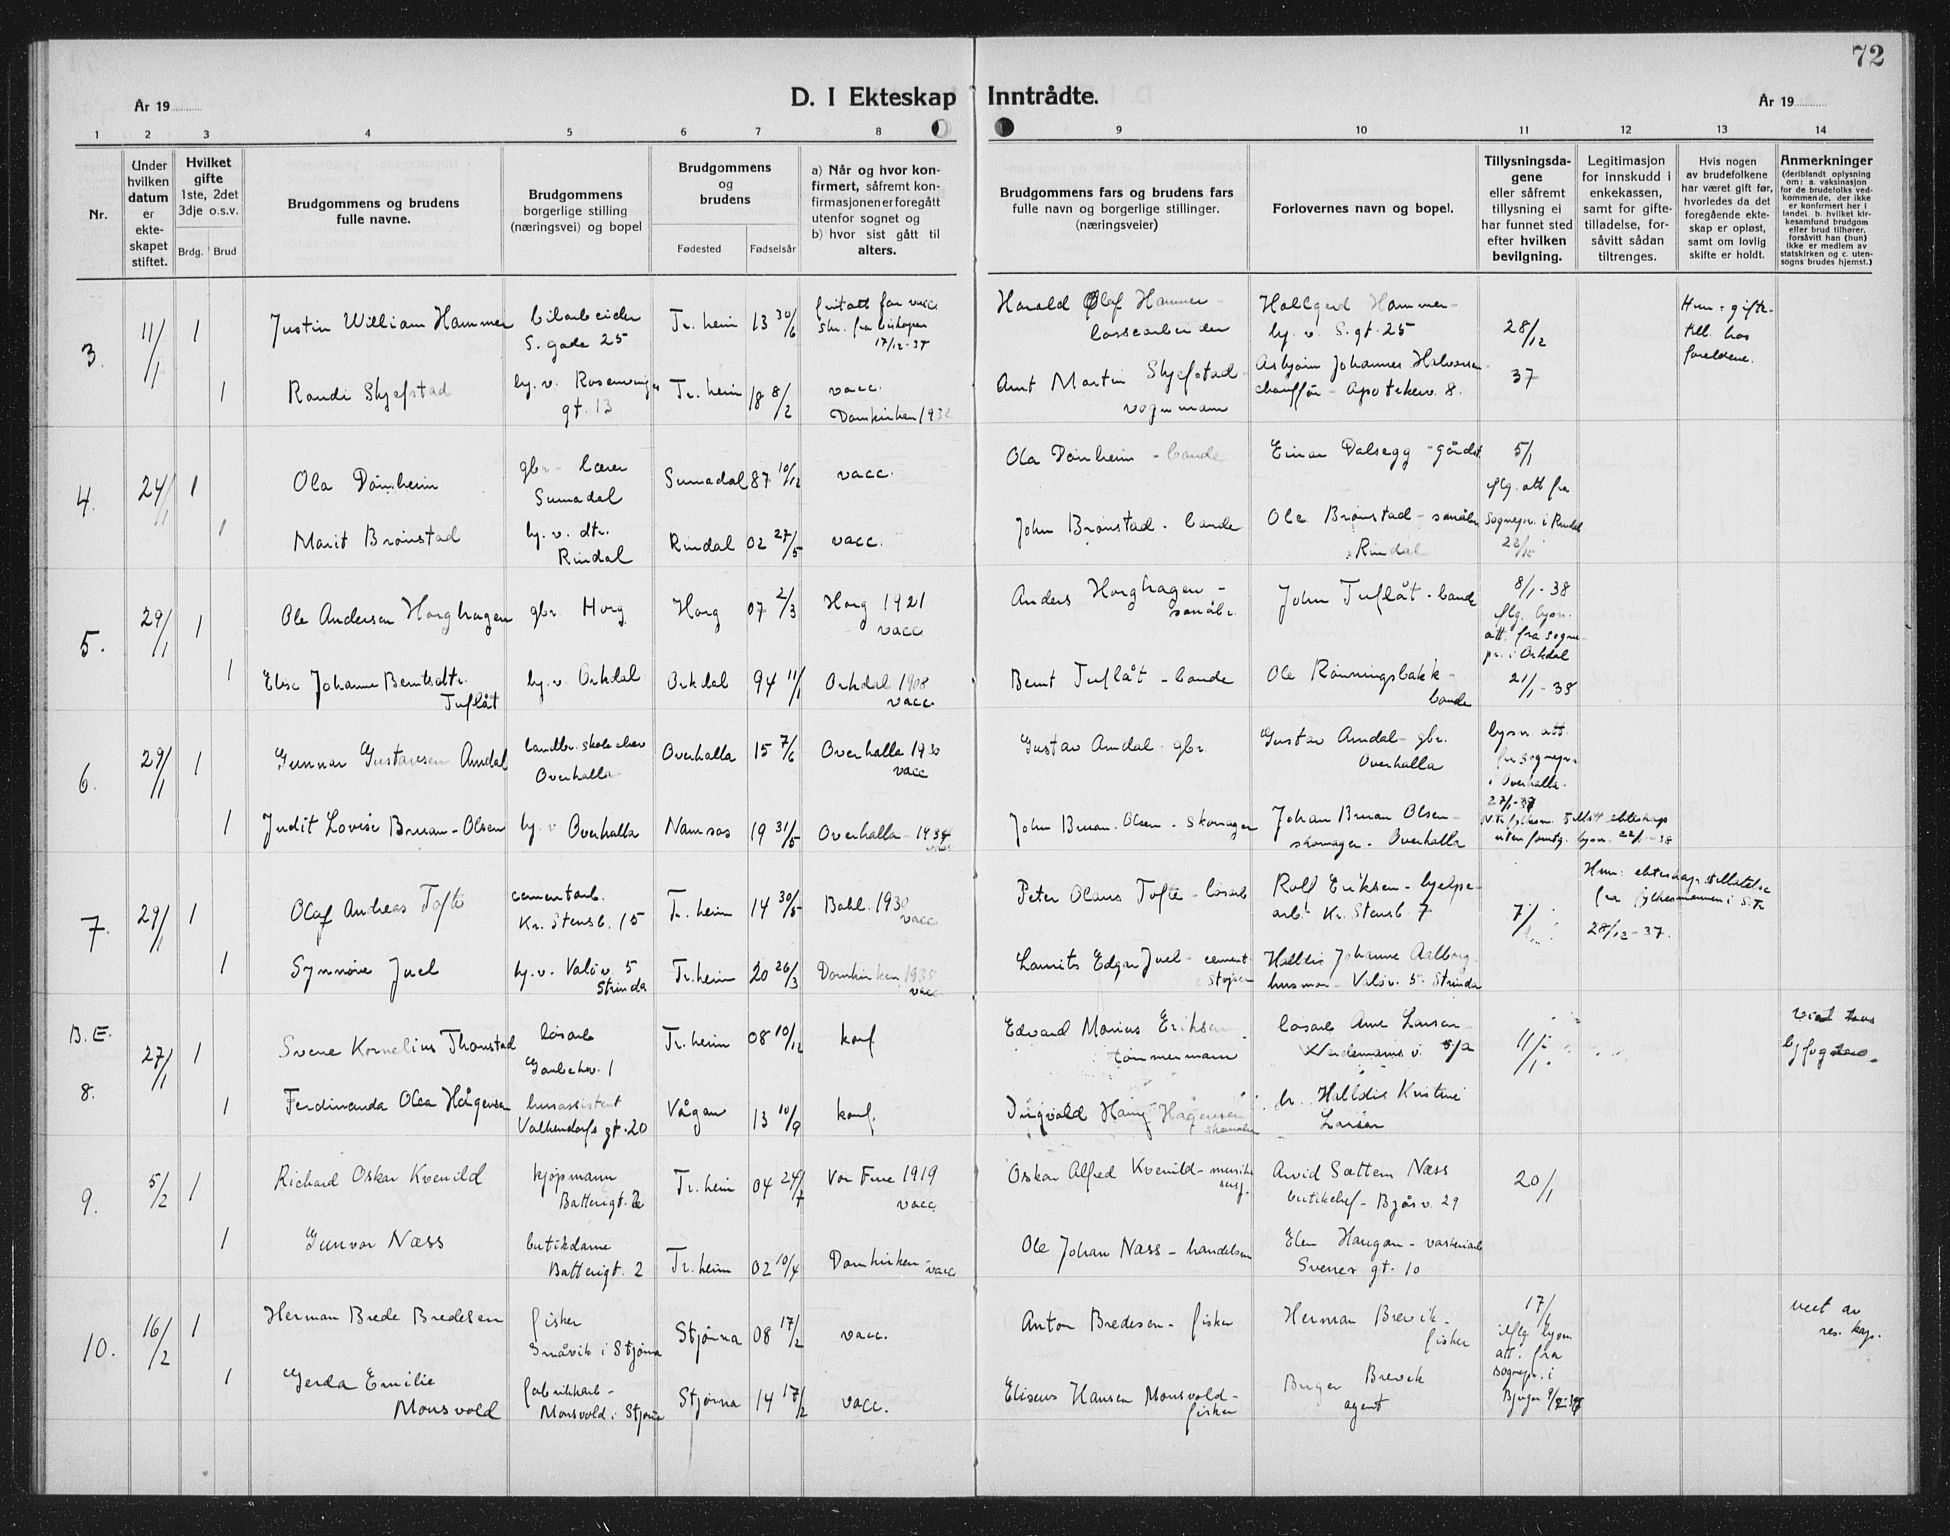 72
År 19
D. I Ekteskap Inntrådte.
År 19
1 2 3 4 5 6 7 8 9 10 11 12 13 14
Nr.
Under hvilken datum er ekteskapet stiftet.
Hvilket gifte
1ste, 2det 3dje o.s.v.
Brdg. Brud
Brudgommens og brudens fulle navne.
Brudgommens borgerlige stilling (næringsvei) og bopel
Brudgommens og brudens
Fødested Fødselsår
a) Når og hvor konfirmert, såfremt konfirmasjonen er foregått utenfor sognet og
b) hvor sist gått til alters.
Brudgommens fars og brudens fars fulle navn og borgerlige stillinger. (næringsveier)
Forlovernes navn og bopel.
Tillysningsdagene eller såfremt tillysning ei har funnet sted efter hvilken bevilgning.
Legitimasjon for innskudd i enkekassen, samt for giftetilladelse, forsåvitt sådan tiltrenges.
Hvis nogen av brudefolkene har været gift før, hvorledes da det foregående ekteskap er opløst, samt om lovlig skifte er holdt.
Anmerkninger
(deriblandt oplysning om: a. vaksinasjon for de brudefolks vedkommende, der ikke er konfirmert her i landet. b. hvilket kirkesamfund brudgom eller brud tilhører, forsåvitt han (hun) ikke er medlem av statskirken og c. utensogns brudes hjemst.)
3. 11/1 1 Justin William Hammer bilarbeider S. gade 25 Tr.heim 13 30/6 fritatt for vacc skr. fra biskopen 17/12-37 Harald Olaf Hammer - lossearbeider Hallgerd Hammer - hj. v. S. gt. 25 28/12 37 Hun: giftetill. hos foreldrene.
1 Randi Skjefstad hj. v. Rosenvinges gt. 13 Tr.heim 18 8/2 vacc. Domkirken 1932 Arnt Martin Skjefstad - vognmann Asbjørn Johannes Halvorsen chauffør - Apotekerv. 8.
4. 24/1 1 Ola Dønheim gbr - lærer Surnadal Surnadal 87 10/12 vacc. Ola Dønheim - bonde Einar Dalsegg - gårdbr. 5/1 iflg. att fra
1 Marit Brønstad hj. v. dtr. Rindal Rindal 02 27/5 vacc. John Brønstad - bonde Ole Brønstad - småbr Rindal sognepr. i Rindal
5. 29/1 1 Ole Andersen Horghagen gbr. Horg Horg 07 2/3 Horg 1921 vacc Anders Horghagen - småbr. John Tuflåt - bonde 8/1-38 iflg. lysn. att. fra sognepr. i Orkdal
1 Elise Johanne Berntsdtr. Tuflåt hj. v. Orkdal Orkdal 94 11/1 Orkdal 1908 vacc. Bernt Tuflåt - bonde Ole Rønningsbakk - bonde 21/1-38
6. 29/1 1 Gunnar Gustavsen Amdal landbr. skoleelev Overhalla Overhalla 15 7/6 Overhalla 1930 vacc Gustav Amdal - gbr. Gustav Amdal - gbr. Overhalla lysn. att. fra sognepr. i Overhalla
1 Judit Lovise Bruun-Olsen hj. v Overhalla Namsos 19 31/5 Overhalla - 1934 vacc John Bruun-Olsen - skomager Johan Bruun Olsen - skomager - Overhalla
7. 29/1 1 Olaf Andreas Tofte cementarb. Kr. Stensb. 15 Tr.heim 14 30/5 Bakl. 1930 vacc Peter Olaus Tofte - løsarb Rolf Eriksen - hjelpearb. Kr. Stensb. 7 7/1 Hun: ekteskapstillatelse fra fylkesmannen i S.Tr 28/12-37.
1 Synnøve Juel hj. v. Valøv. 5 Strinda Tr.heim 20 26/3 Domkirken 1935 vacc Laurits Edgar Juel - cementstøper Halldis Johanne Aalborg husmor - Valøv. 5 - Strinda
B.E. 8. 27/1 1 Sverre Kornelius Thonstad løsarb Tr.heim 08 10/12 konf. Edvard Marius Eriksen - tømmermann løsarb Arne Larsen - 11/1
1 Ferdinanda Olea Hågensen husassistent Valkendorfs gt. 20 Vågan 13 10/9 konf. Ingvald Hågensen fr. Halldis Kristine Larsen
9. 5/2 1 Richard Oskar Kvenild kjøpmann Batterigt. 2 Tr.heim 04 24/7 Vor Frue 1919 vacc Oskar Alfred Kvenild - musikksersj. Arvid Sættem Næss butikchef - Bjåsv. 29 20/1
1 Gunvor Næss butikdame Batterigt. 2 Tr.heim 02 10/4 Domkirken - vacc Ole Johan Næss - handelsm Elen Haugan - vaskeriarb Sverres gt. 10
10. 16/2 1 Herman Brede Bredesen fisker Småvik i Stjørna Stjørna 08 17/2 vacc. Anton Bredesen - fisker Herman Brevik - fisker 17/1 iflg lysn. att. fra sognepr. i Bjugn viet av res. kap.
1 Gerda Emilie Monsvold fabrikkarb - Monsvold i Stjørna Stjørna 14 17/2 vacc. Eliseus Hansen Monsvold - fisker Birger Brevik agent